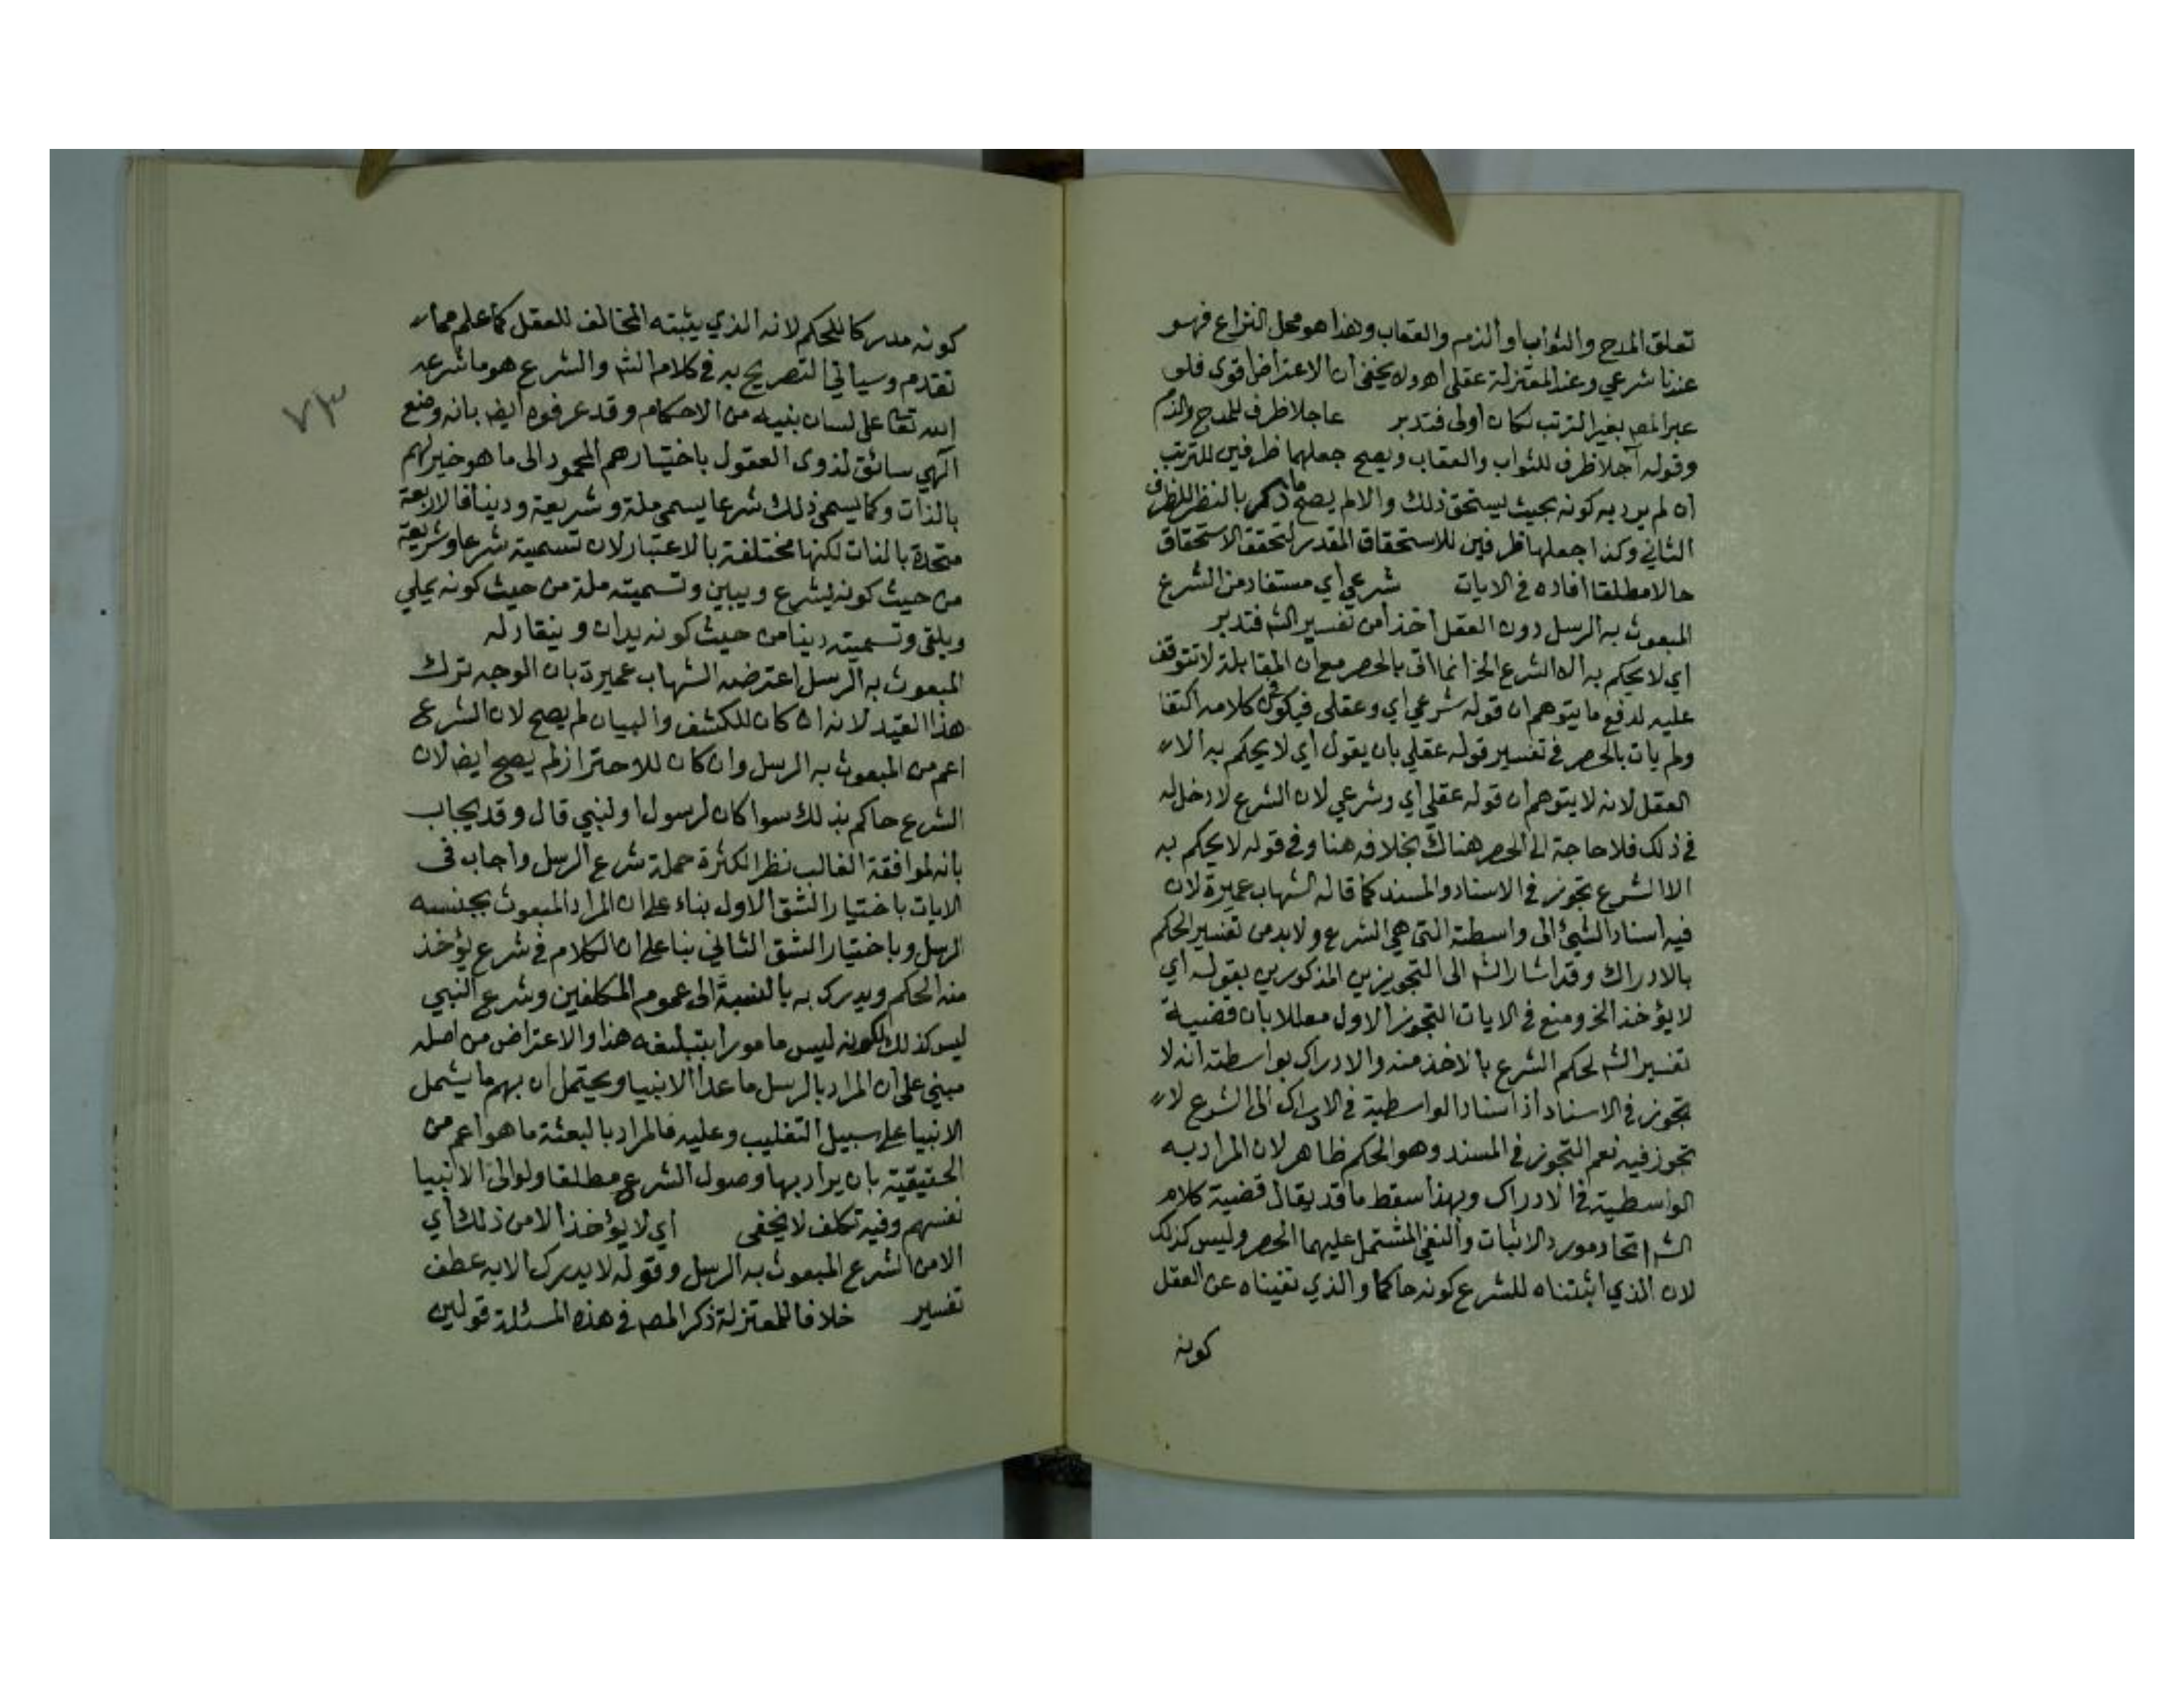 تعلق المدح والثواب او الذم والعقاب وهذا هو محل النزاع فهو
عندنا شرعي وعند المعتزلة عقلي اهـ ولا يخفى ان الاعتراض اقوى فلو
عبر المص بغير الترتب لكان أولى فتدبر عاجلا ظرف للمدح والذم
وقوله آجلا ظرف للثواب والعقاب ويصح جعلهما ظرفين للترتب
ان لم يرد به كونه بحيث يستحق ذلك والا لم يصح ما ذكر بالنظر للظرف
الثاني وكذا جعلها ظرفين للاستحقاق المقدر لتحقق الاستحقاق
حالا مطلقا افاده في الايات شرعي أي مستفاد من الشرع
المبعوث به الرسل دون العقل أخذا من تفسير الش فتدبر
اي لا يحكم به الا الشرع الخ انما اتى بالحصر مع ان المقابلة لا تتوقف
عليه لدفع ما يتوهم ان قوله شرعي أي وعقلي فيكون في كلامه اكتفا
ولم يات بالحصر في تفسير قوله عقلي بان يقول أي لا يحكم به الا
العقل لانه لا يتوهم ان قوله عقلي أي وشرعي لان الشرع لا دخل له
في ذلك فلا حاجة الى الحصر هناك بخلافه هنا وفي قوله لا يحكم به
الا الشرع تجوز في الاسناد والمسند كما قاله الشهاب عميرة لان
فيه اسناد الشيئ الى واسطته التي هي الشرع ولا بد من تفسير الحكم
بالادراك وقد اشار الش الى التجويزين المذكورين بقوله أي
لا يؤخذ الخ ومنع في الايات التجوز الاول معللا بان قضية
تفسير الش لحكم الشرع بالاخذ منه والادراك بواسطته انه لا
تجوز في الاسناد اذ اسناد الواسطية في الادراك الى الشرع لا
تجوز فيه نعم التجوز في المسند وهو الحكم ظاهر لان المراد به
الواسطية في الادراك وبهذا سقط ما قد يقال قضية كلام
الش اتحاد مورد الاثبات والنفي المشتمل عليهما الحصر وليس كذلك
لان الذي اثبتناه للشرع كونه حاكما والذي نفيناه عن العقل
كونه
كونه مدركا للحكم لانه الذي يثبته المخالف للعقل كما علم مما
تقدم وسياتي التصريح به في كلام الش والشرع هو ما شرعه
الله تعا على لسان بنيه من الاحكام وقد عرفوه ايض بانه وضع
الهي سائق لذوى العقول باختيارهم المحمود الى ما هو خير لهم
بالذات وكما يسمى ذلك شرعا يسمى ملة وشريعة ودينا فالاربعة
متحدة بالذات لكنها مختلفة بالاعتبار لان تسميته شرعا وشريعة
من حيث كونه يشرع ويبين وتسميته ملة من حيث كونه يملي
ويلقى وتسميته دينا من حيث كونه يدان وينقاد له
المبعوث به الرسل اعترضه الشهاب عميرة بان الوجه ترك
هذا القيد لانه ان كان للكشف والبيان لم يصح لان الشرع
اعم من المبعوث به الرسل وان كان للاحتراز لم يصح ايض لان
الشرع حاكم بذلك سوا كان لرسول او لنبي قال وقد يجاب
بانه لموافقة الغالب نظرا لكثرة حملة شرع الرسل وأجاب في
الايات باختيار الشق الاول بناء على ان المراد المبعوث بجنسه
الرسل وباختيار الشق الثاني بنا على ان الكلام في شرع يؤخذ
منه الحكم ويدرك به بالنسبة الى عموم المكلفين وشرع النبي
ليس كذلك لكونه ليس مامورا بتبليغه هذا والاعتراض من اصله
مبني على ان المراد بالرسل ما عدا الانبيا ويحتمل ان بهم ما يشمل
الانبيا على سبيل التغليب وعليه فالمراد بالبعثة ما هو اعم من
الحقيقية بان يراد بها وصول الشرع مطلقا ولو الى الانبيا
نفسهم وفيه تكلف لا يخفى أي لا يؤخذ الا من ذلك أي
الا من الشرع المبعوث به الرسل وقوله لا يدرك الا به عطف
تفسير خلافا للمعتزلة ذكر المص في هذه المسئلة قولين
٧٣